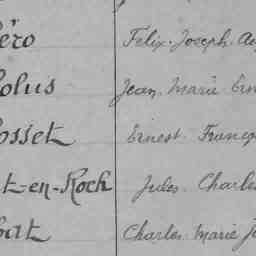 éro Félix. Joseph. Au
olus Jean. Marie Ern
osset Ernest. Franço
t-en-Roch Jules. Charles
bat Charles. Marie J